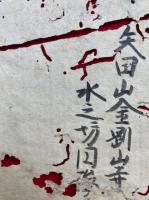 矢田山金剛山寺
水之切図